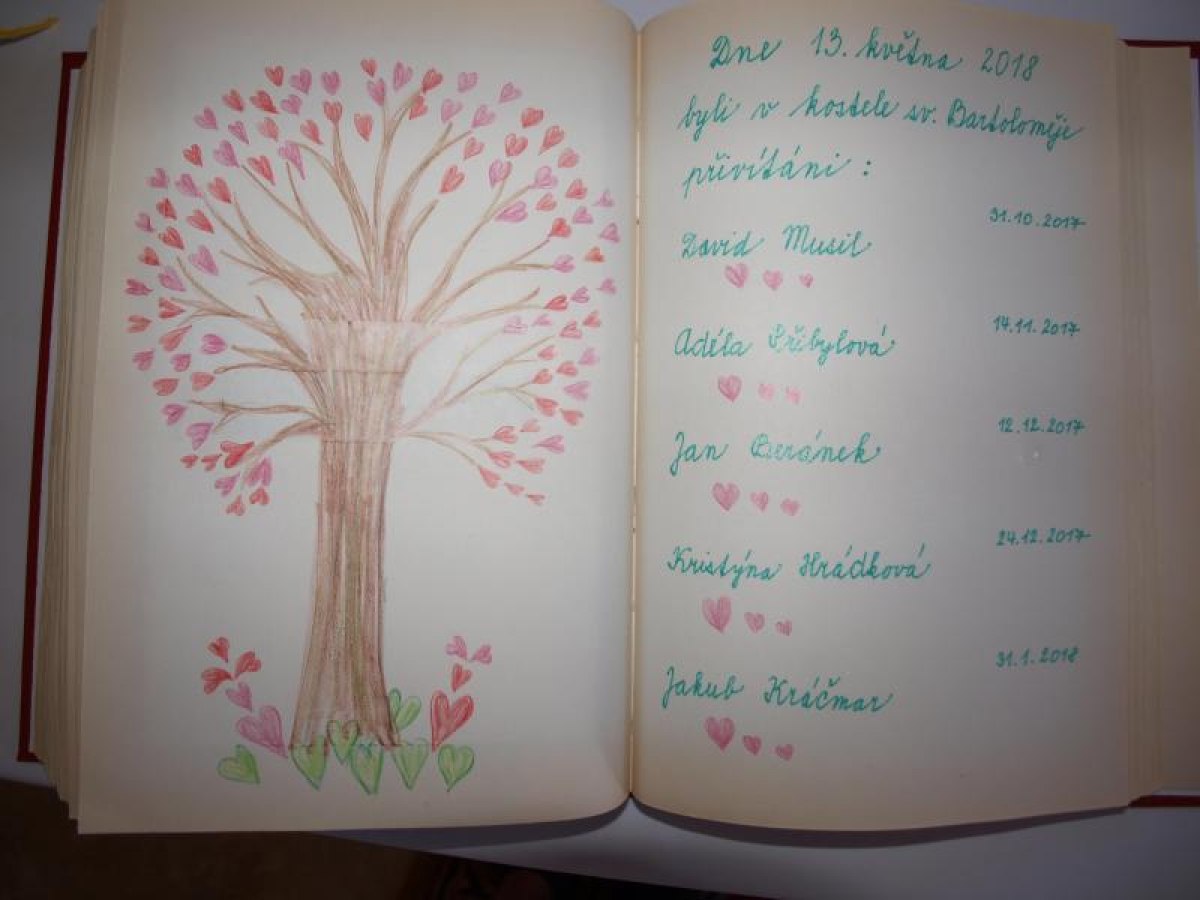 Dne 13. května 2018
byli v kostele sv. Bartoloměje
přivítáni :
31.10.2017
David Musil
14.11.2017
Adéla Přibylová
12.12.2017
Jan Beránek
24.12.2017
Kristýna Hrádková
31.1.2018
Jakub Kráčmar